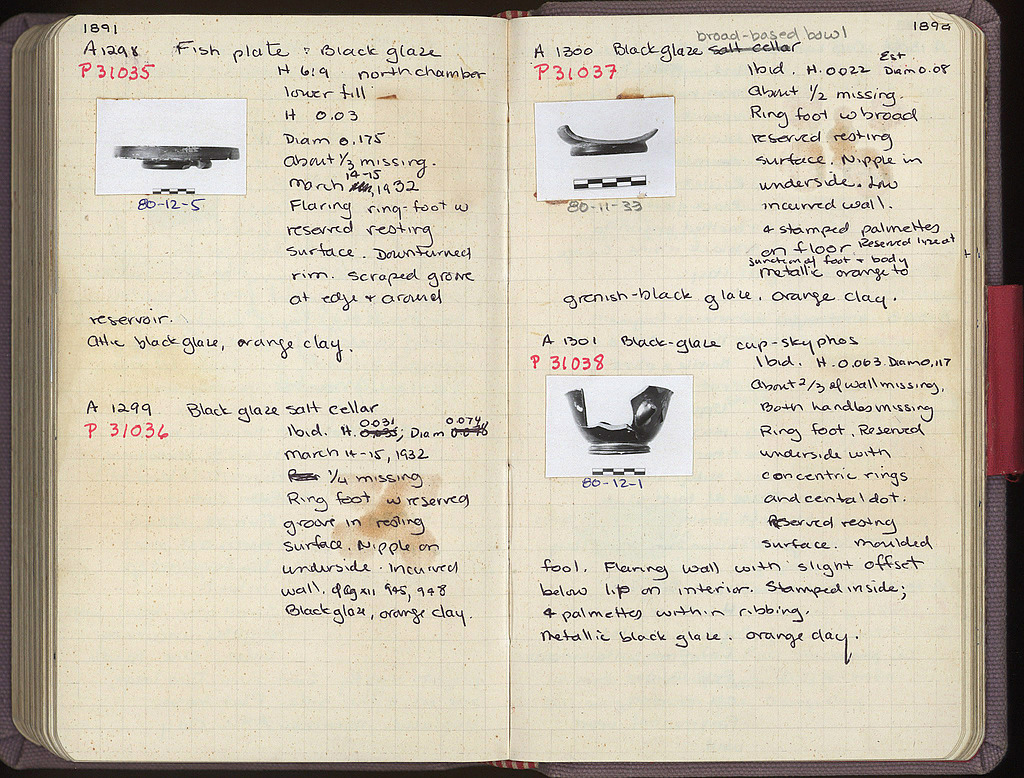 1891
A 1298 Fish plate : Black glaze
P 31035 H 6:9 north chamber
lower fill
H 0.03
Diam 0.175
About 1/3 missing.
14-15
March , 1932
80-12-5
Flaring ring-foot w
reserved resting
surface. Downturned
rim. Scraped groove
at edge + around
reservoir.
Attic black glaze, orange clay.
A 1299 Black glaze salt cellar
0.031 0.074
P 31036 Ibid. H. 0.035; Diam
March 14-15, 1932
1/4 missing
Ring foot w reserved
groove in resting
surface. Nipple on
underside. Incurved
wall. Ag XII 945, 948
Black glaze, orange clay.
1892
broad-based bowl
A 1300 Black glaze salt cellar
Est
P 31037 Ibid. H. 0.022 Diam 0.08
About 1/2 missing.
Ring foot w broad
reserved resting
surface. Nipple in
underside. Low
incurved wall.
80-11-33
4 stamped palmettes
on floor Reserved line at
junction of foot + body
metallic orange to
grenish-black glaze. orange clay.
A 1301 Black-glaze cup-skyphos
P 31038 Ibid. H. 0.063. Diam 0.117
About 2/3 of wall missing.
Both handles missing
Ring foot. Reserved
underside with
concentric rings
80-12-1
and cental dot.
Reserved resting
surface. Moulded
foot. Flaring wall with slight offset
below lip on interior. Stamped inside;
4 palmettes within ribbing.
Metallic black glaze. orange clay.